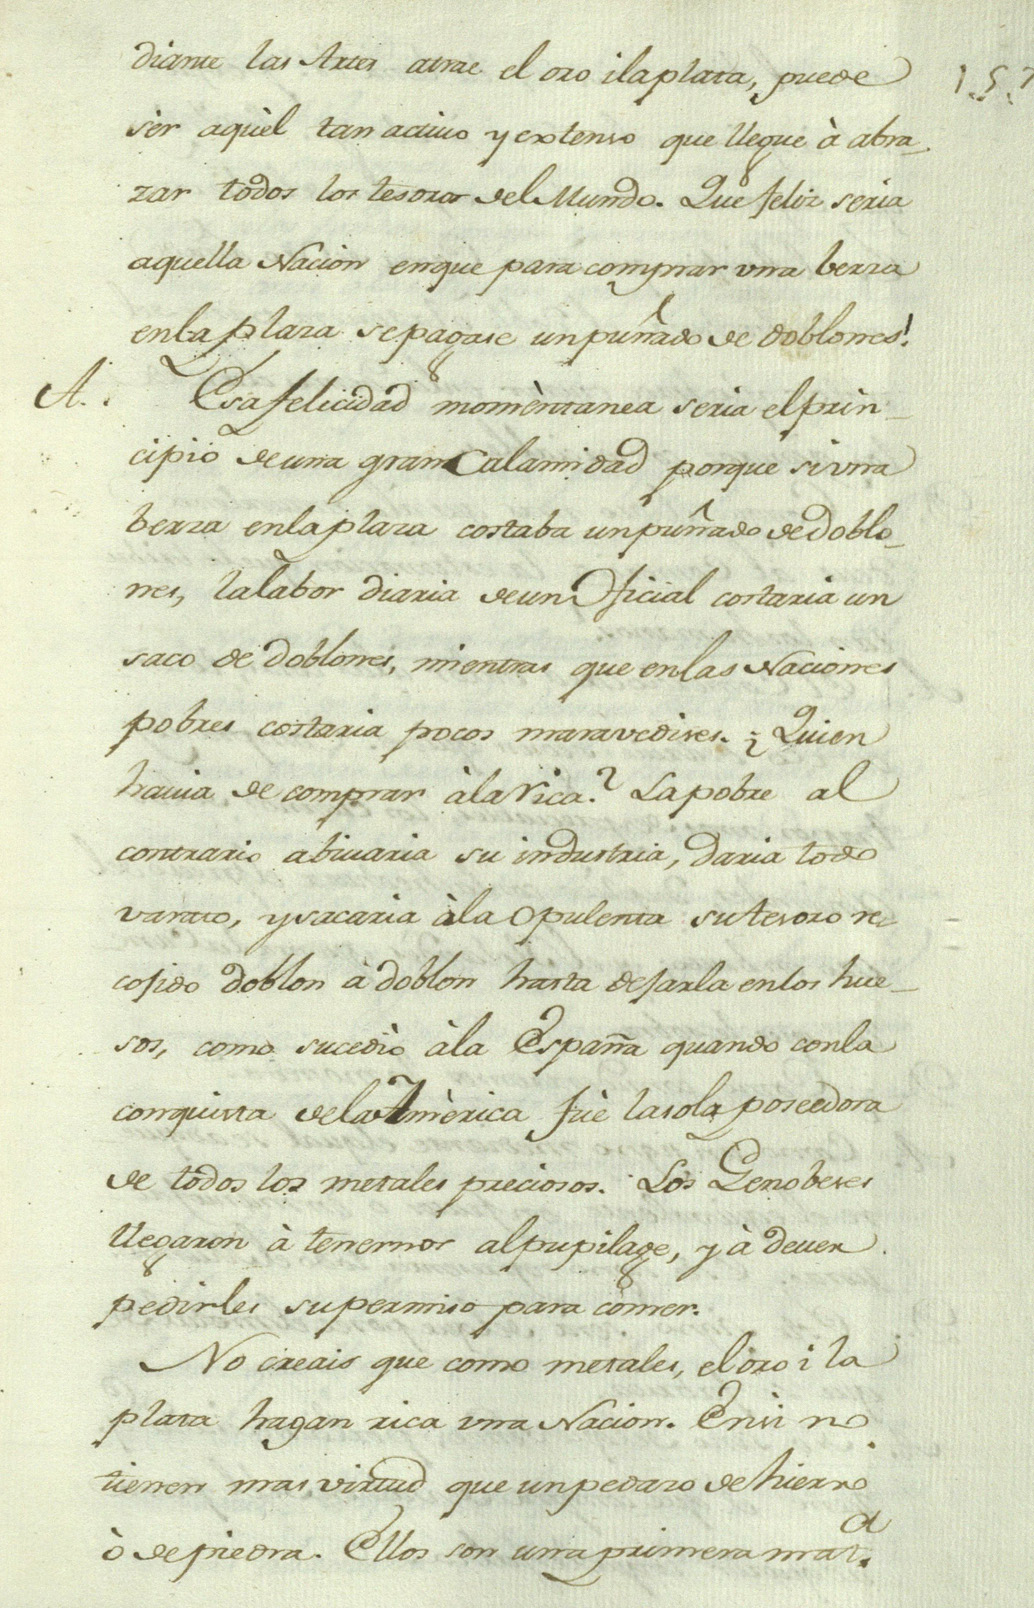 diante las Artes atrae el oro i la plata, puede
157
sèr aquèl tan activo y extenso que llegue à abra-
zar todos los tesoros del Mundo. Que feliz seria
aquella Naciòn en que para comprar vna berza
en la plaza se pagase un puñado de doblones!
A. Esa felicidad momèntanea seria el prin-
cipio de una gran Calamidad porque si vna
berza en la plaza costaba un puñado de doblo-
nes, la labor diaria de un Oficial costaria un
saco de doblones, mientras que en las Naciones
pobres costaria pocos maravedises. ¿Quien
havia de comprar à la rica? La pobre al
contrario abivaria su industria, daria todo
varato, y sacaria à la Opulenta su tesoro re-
cojido doblon à doblon hasta dejarla en los hue-
sos, como sucediò à la España quando con la
conquista de la Amèrica fuè la sola poseedora
de todos los metales preciosos. Los Genobeses
llegaron à tenernos al pupilage, y à dever
pedirles su permiso para comer.
No creais que como metales, el oro i la
plata hagan rica vna Nacion. En si no
tienen mas virtud que un pedazo de hierro
ò de piedra. Ellos son una primera mat.a